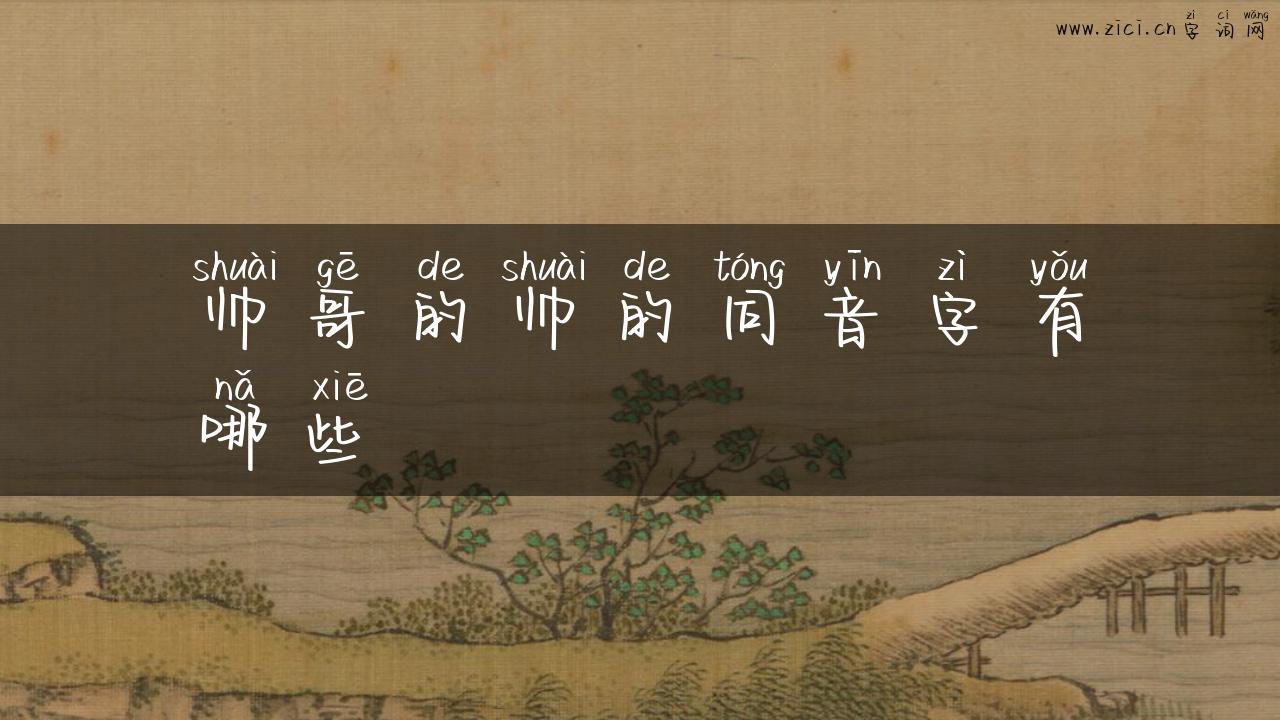 zì cí wǎng
www.zici.cn 字 词 网
shuài gē de shuài de tóng yīn zì yǒu
帅 哥 的 帅 的 同 音 字 有
nǎ xiē
哪 些